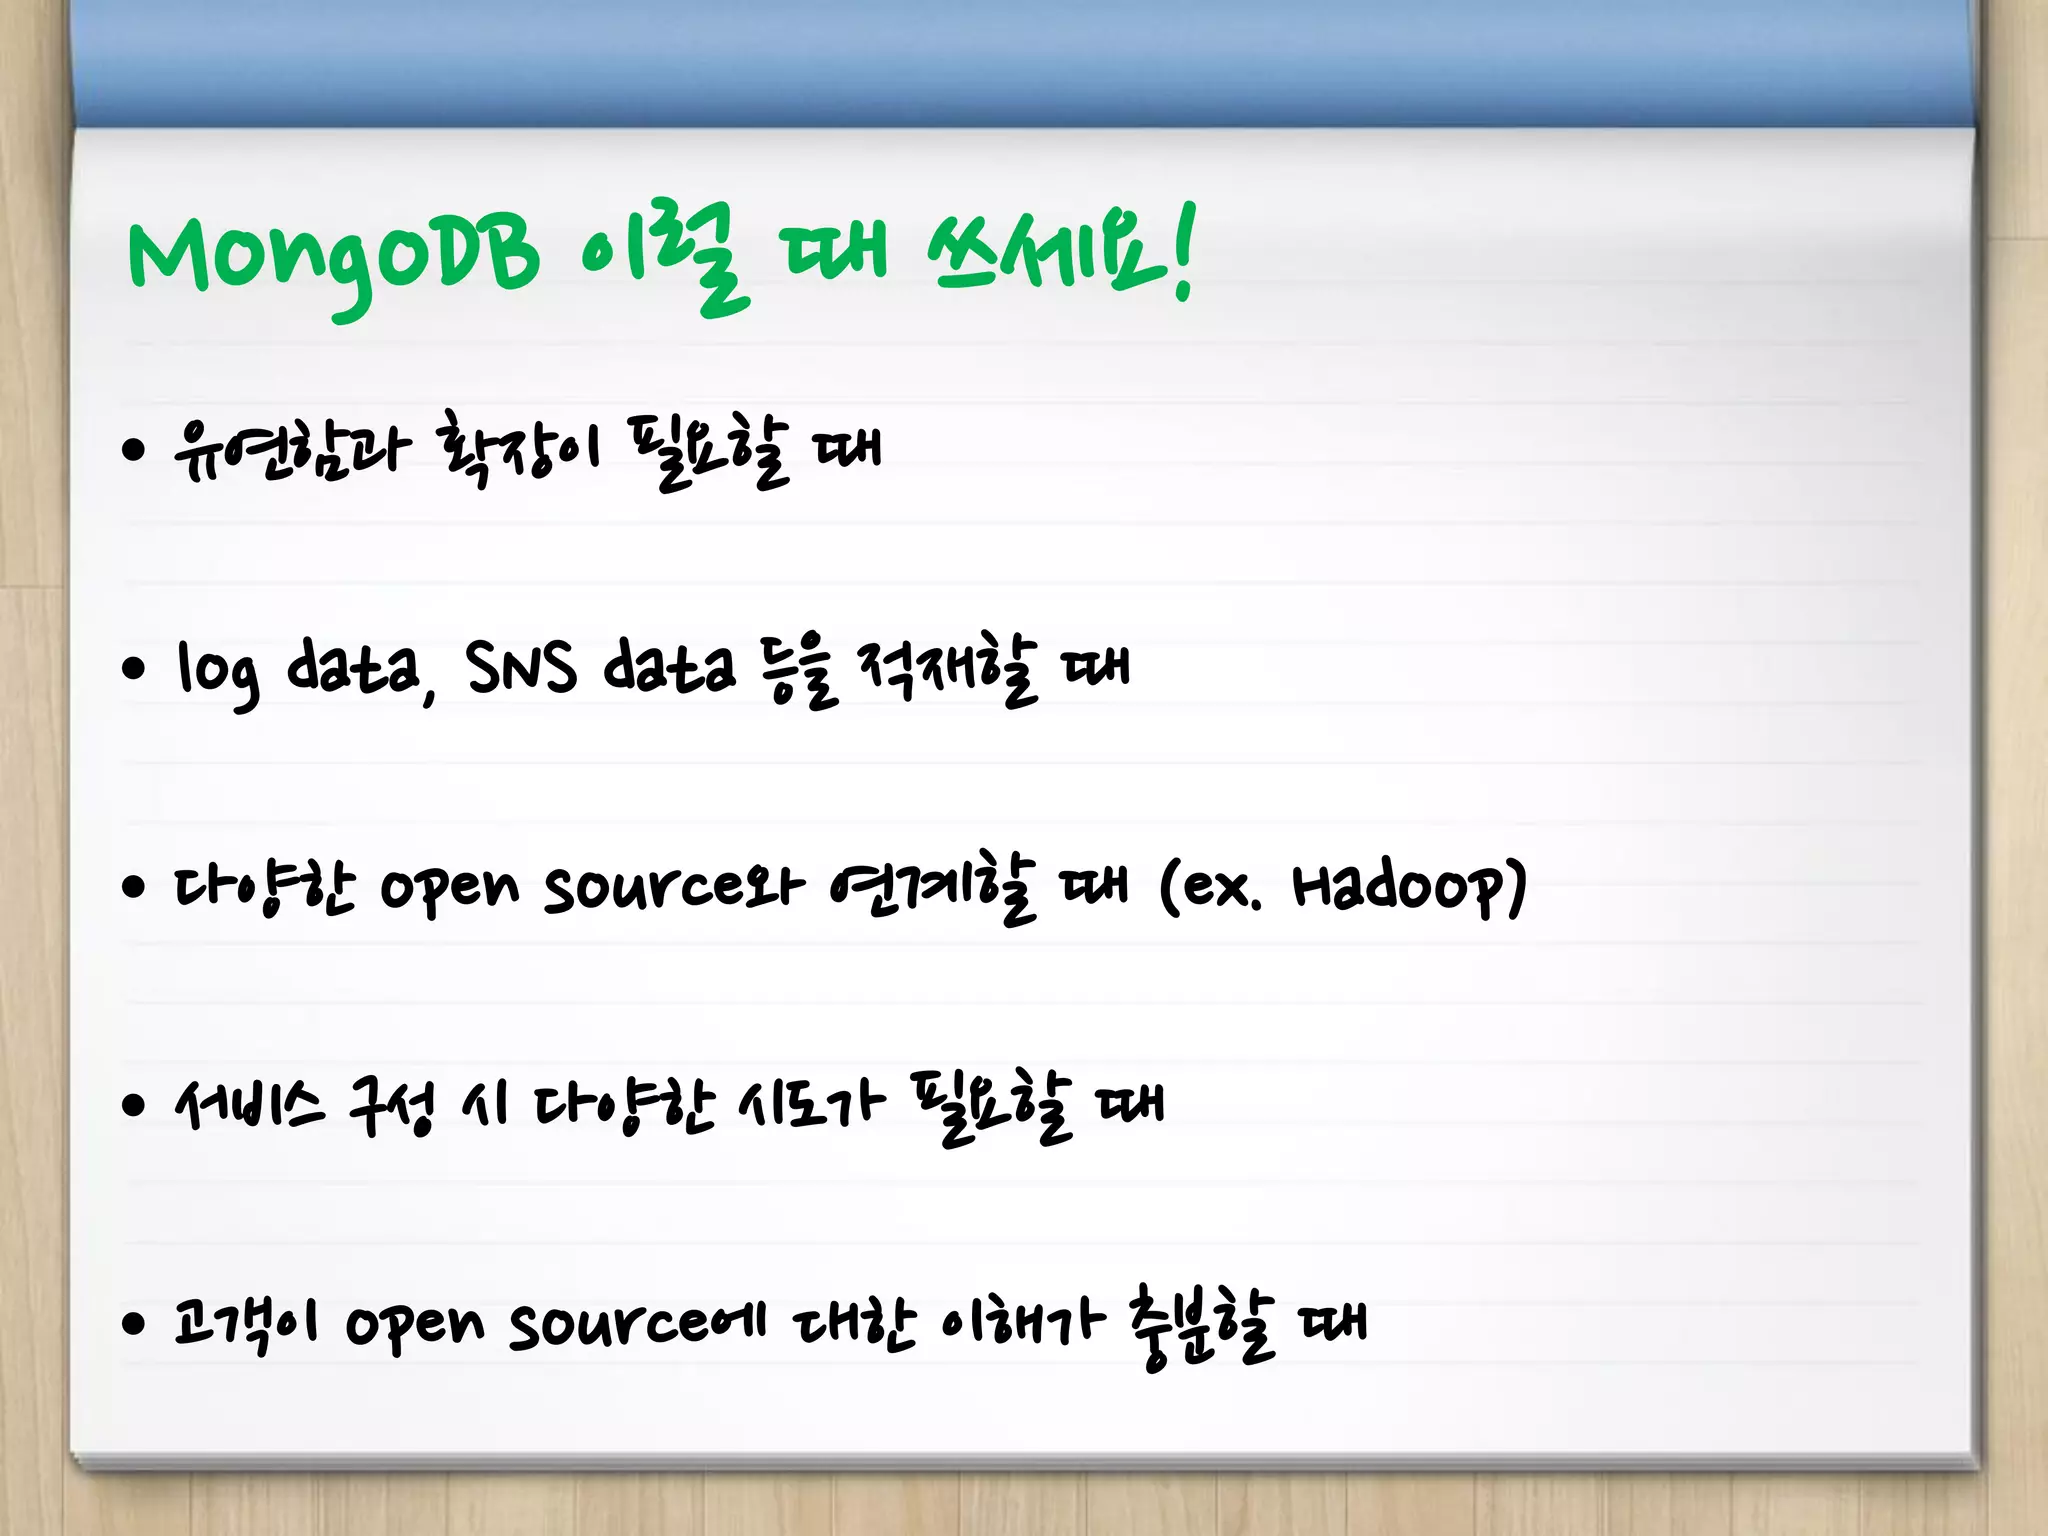 MongoDB 이럴 때 쓰세요!
• 유연함과 확장이 필요할 때
• log data, SNS data 등을 적재할 때
• 다양한 open source와 연계할 때 (ex. Hadoop)
• 서비스 구성 시 다양한 시도가 필요할 때
• 고객이 open source에 대한 이해가 충분할 때